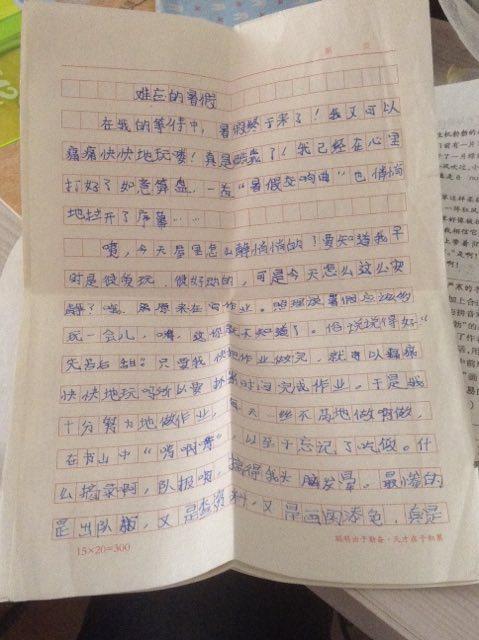 难忘的暑假
在我的等待中，暑假终于来了！我又可以
痛痛快快地玩喽！真是酷毙了！我已经在心里
打好了如意算盘，一首“暑假交响曲”也悄悄
地拉开了序幕……
噴，今天屋里怎么静悄悄的？要知道我平
时是很贪玩、很好动的，可是今天怎么这么安
静？哦，原来在写作业。照理说暑假应该多
玩一会儿，嘻，这你就不知道了。俗话说得好“
先苦后甜”只要我快地作业做完，就可以痛痛
快快地玩 所以要抓紧时间完成作业。于是我
十分努力地做作业，每天一丝不苟地做啊做，
在书山中“啃啊啃”，以至于忘记了吃饭。什
么摘录啊，队报啊，搞得我头脑发晕。最惨的
是出队报，又是查资料，又是画图添色，真是
15×20=300
聪明出于勤奋·天才在于积累